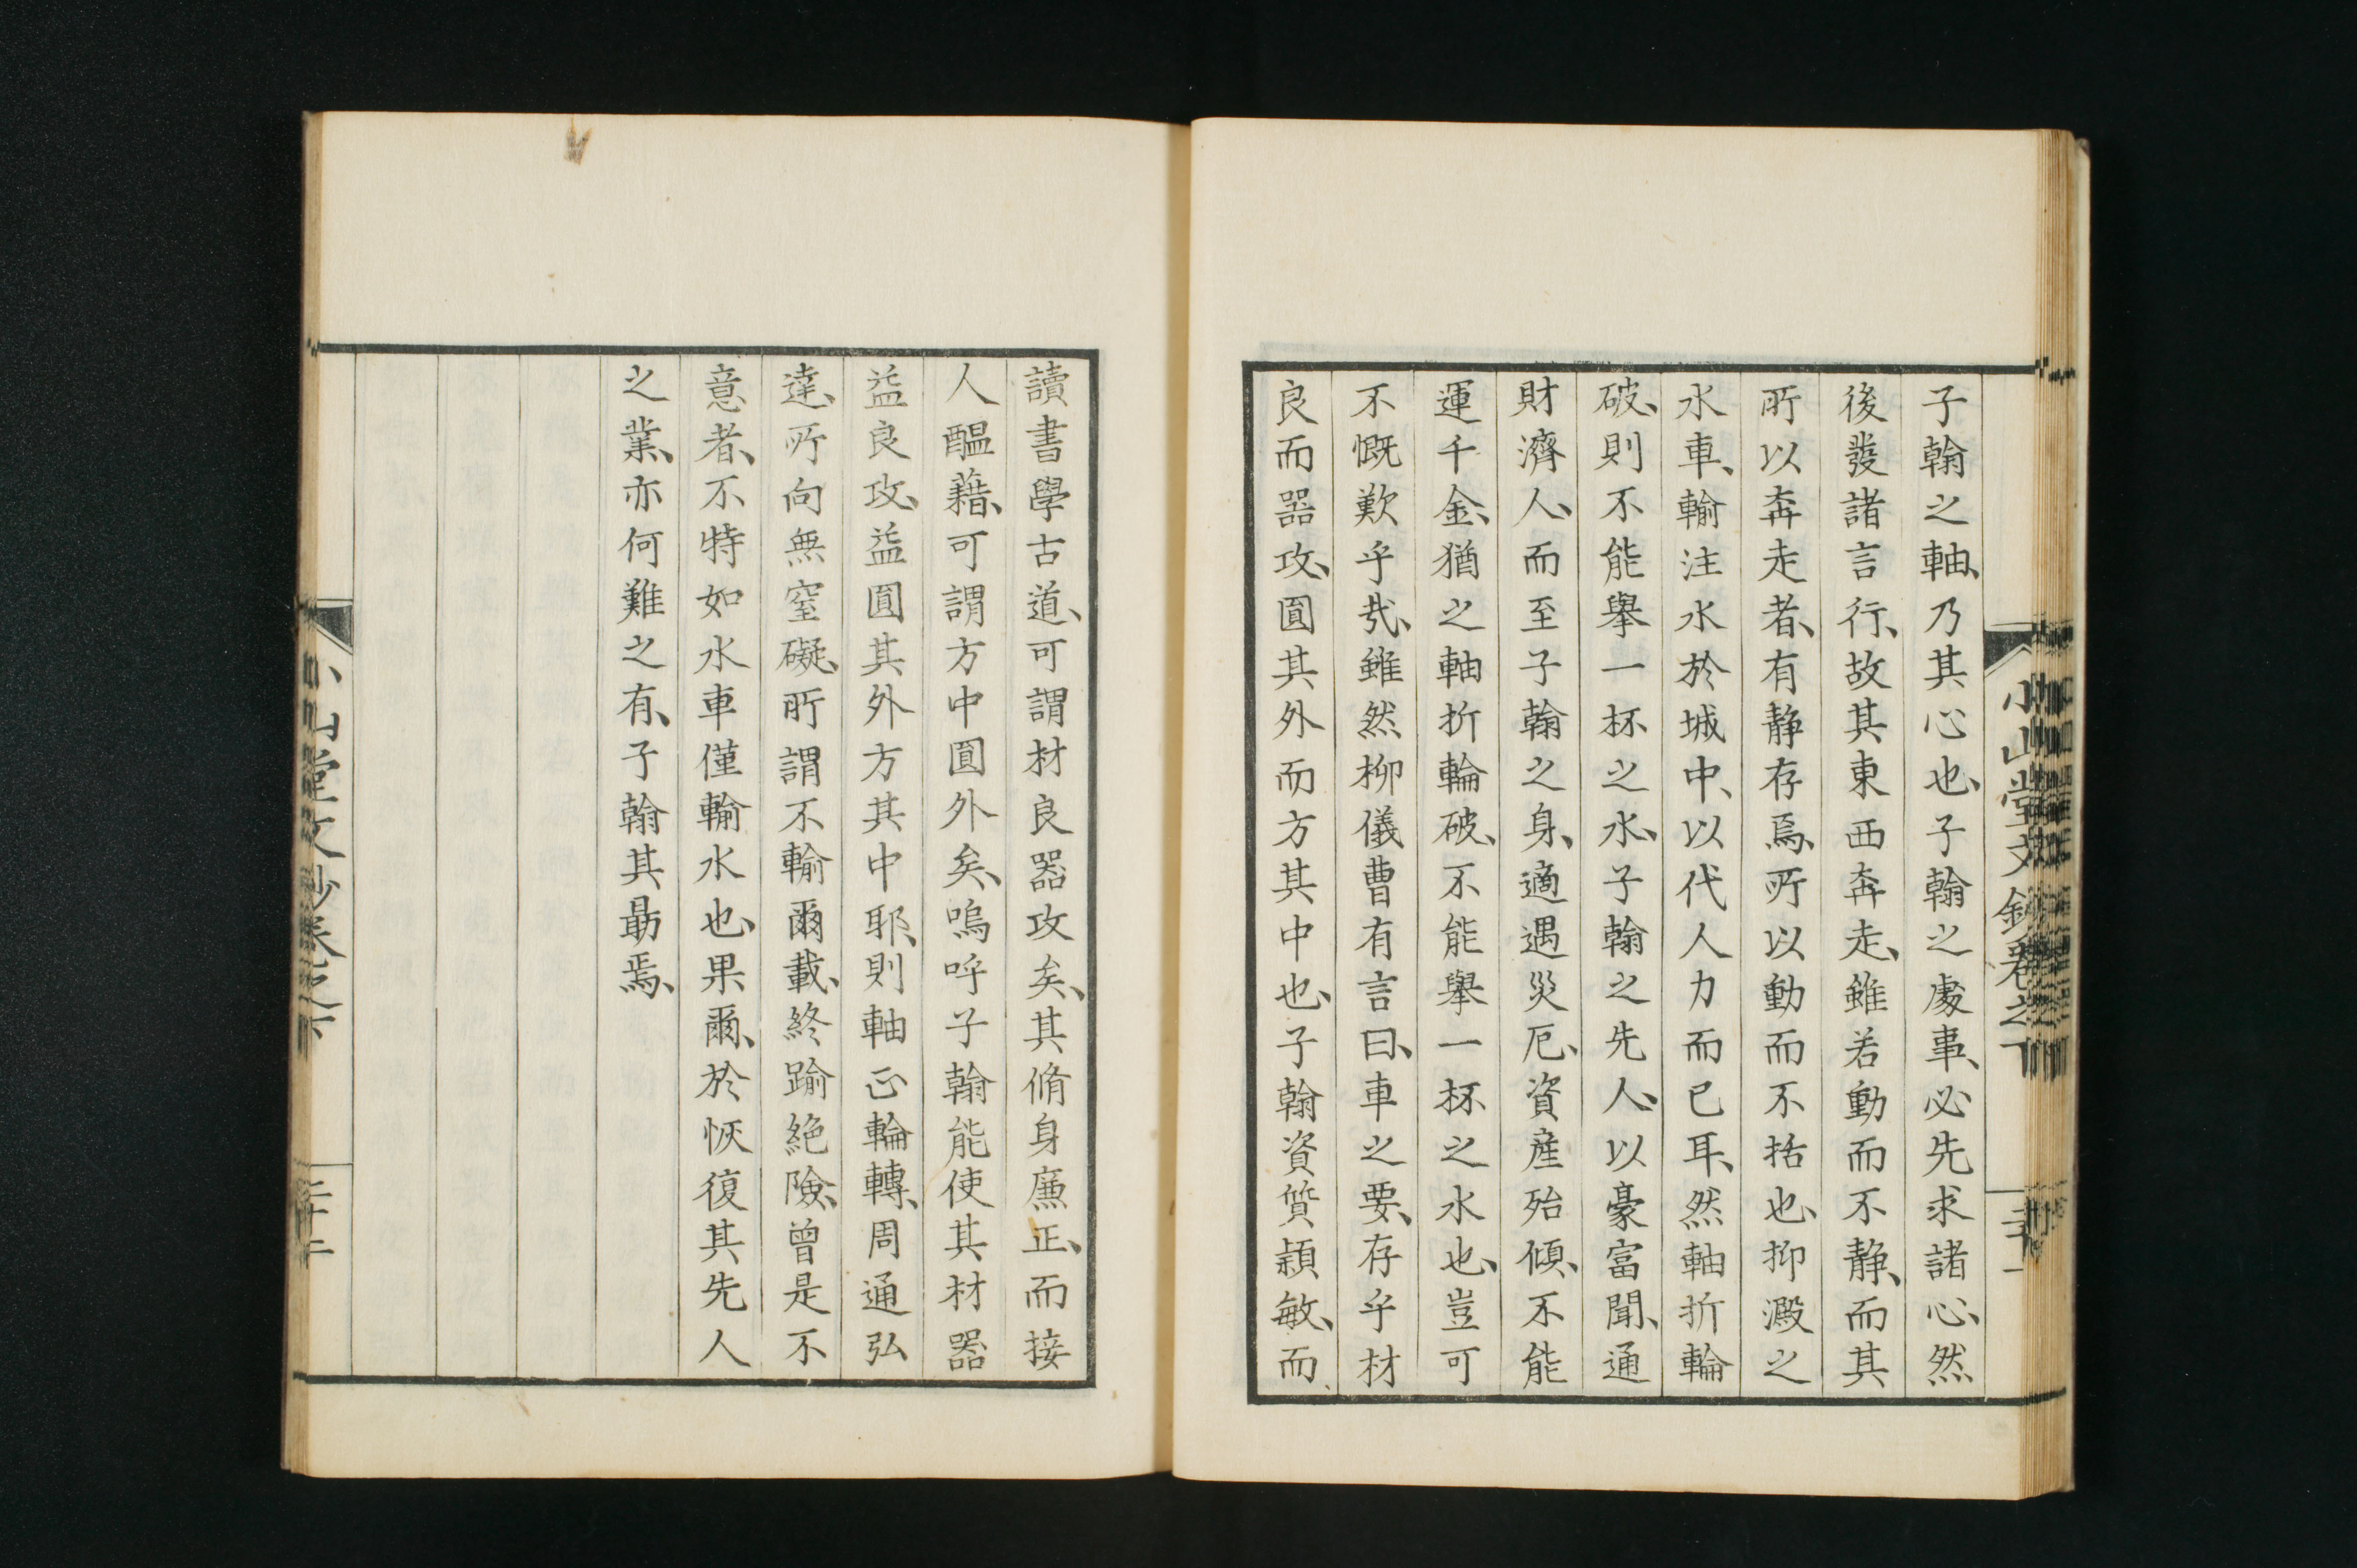 子翰之軸、乃其心也、子翰之處事、必先求諸心、然
後發諸言行、故其東西奔走、雖若動而不静、而其
所以奔走者、有静存焉、所以動而不括也、抑澱之
水車、輸注水於城中、以代人力而已耳、然軸折輪
破、則不能舉一杯之水、子翰之先人、以豪富聞、通
財濟人、而至子翰之身、適遇災厄、資產殆傾、不能
運千金、猶之軸折輪破、不能舉一杯之水也、豈可
不慨歎乎哉、雖然柳儀曹有言曰、車之要、存乎材
良而器攻、圓其外而方其中也、子翰資質穎敏、而
小山堂文鈔卷之下
三十一
讀書學古道、可謂材良器攻矣、其脩身廉正、而接
人醞藉、可謂方中圓外矣、嗚呼子翰能使其材器
益良攻、益圓其外方其中耶、則軸正輪轉、周通弘
達、所向無窒礙、所謂不輸爾載、終踰絶險、曾是不
意者、不特如水車僅輸水也、果爾、於恢復其先人
之業、亦何難之有、子翰其勗焉、
小山堂文鈔卷之下